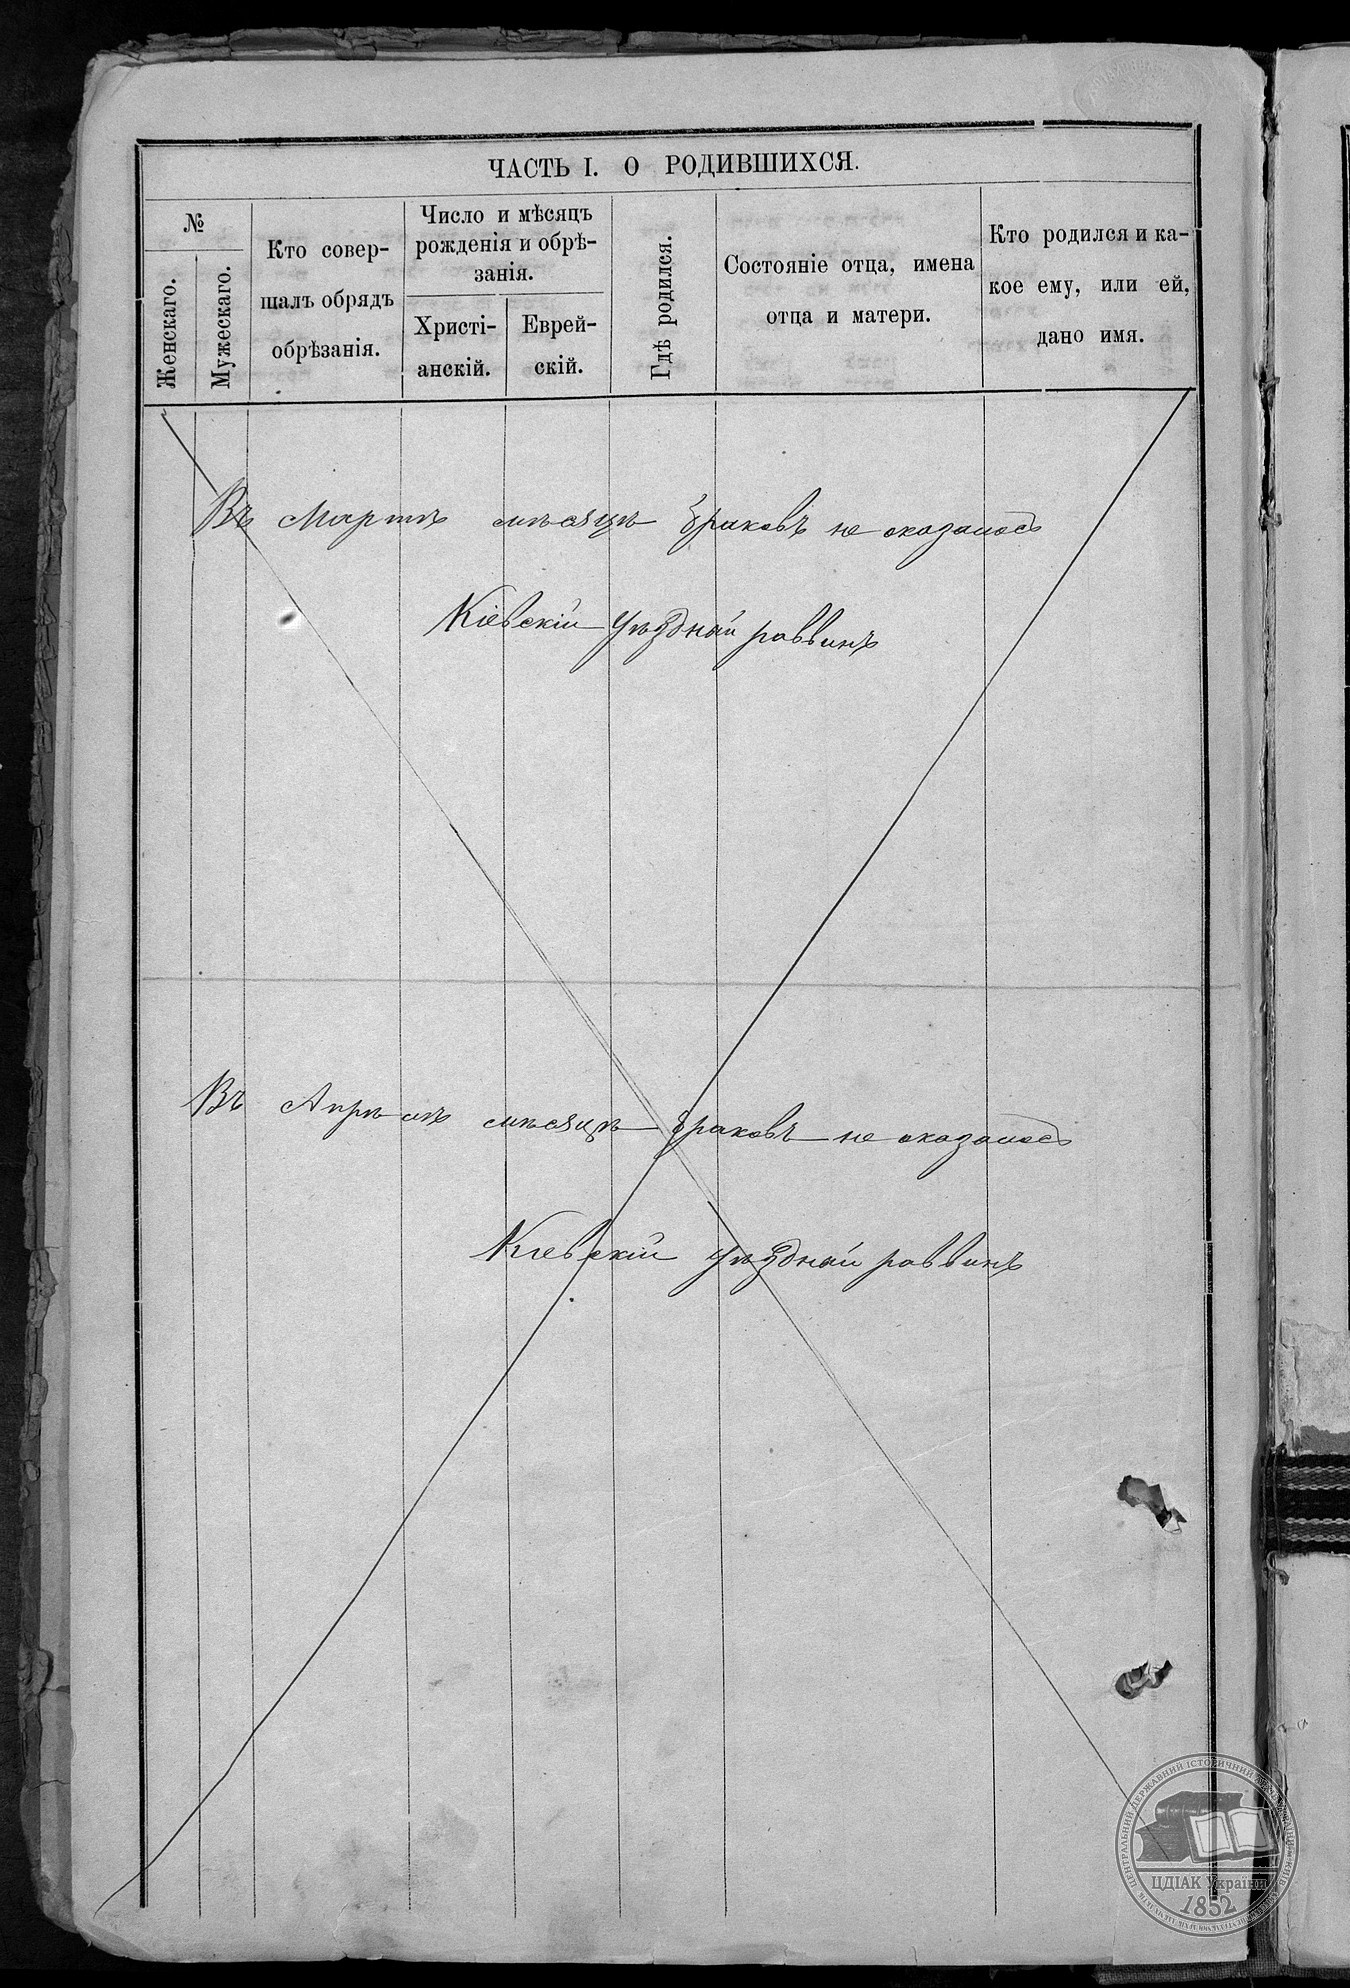 ЧАСТЬ I. О РОДИВШИХСЯ.
№
Женскаго.
Мужескаго.
Кто совер-
шалъ обрядъ
обрѣзанія.
Число и мѣсяцъ
рожденія и обрѣ-
занія.
Христі-
анскій.
Еврей-
скій.
Гдѣ родился.
Состояніе отца, имена
отца и матери.
Кто родился и ка-
кое ему, или ей,
дано имя.
Въ Мартѣ мѣсяцѣ браковъ не оказалось
Кіевскій уѣздный раввинъ
Въ Апрѣлѣ мѣсяцѣ браковъ не оказалось
Кіевскій уѣздный раввинъ
ЦЕНТРАЛЬНИЙ ДЕРЖАВНИЙ ІСТОРИЧНИЙ
ЦДІАК України
1852